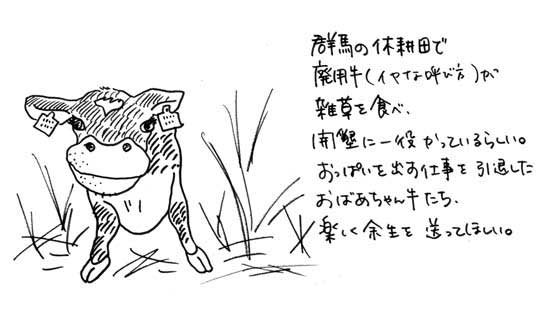 群馬の休耕田で
廃用牛(イヤな呼び方)が
雑草を食べ、
開墾に一役かっているらしい。
おっぱいを出す仕事を引退した
おばあちゃん牛たち、
楽しく余生を送ってほしい。